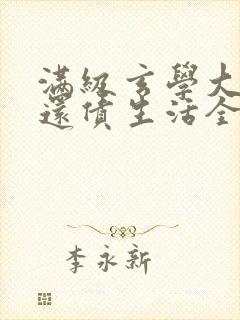 滿級玄學大
還債生活全
李永新